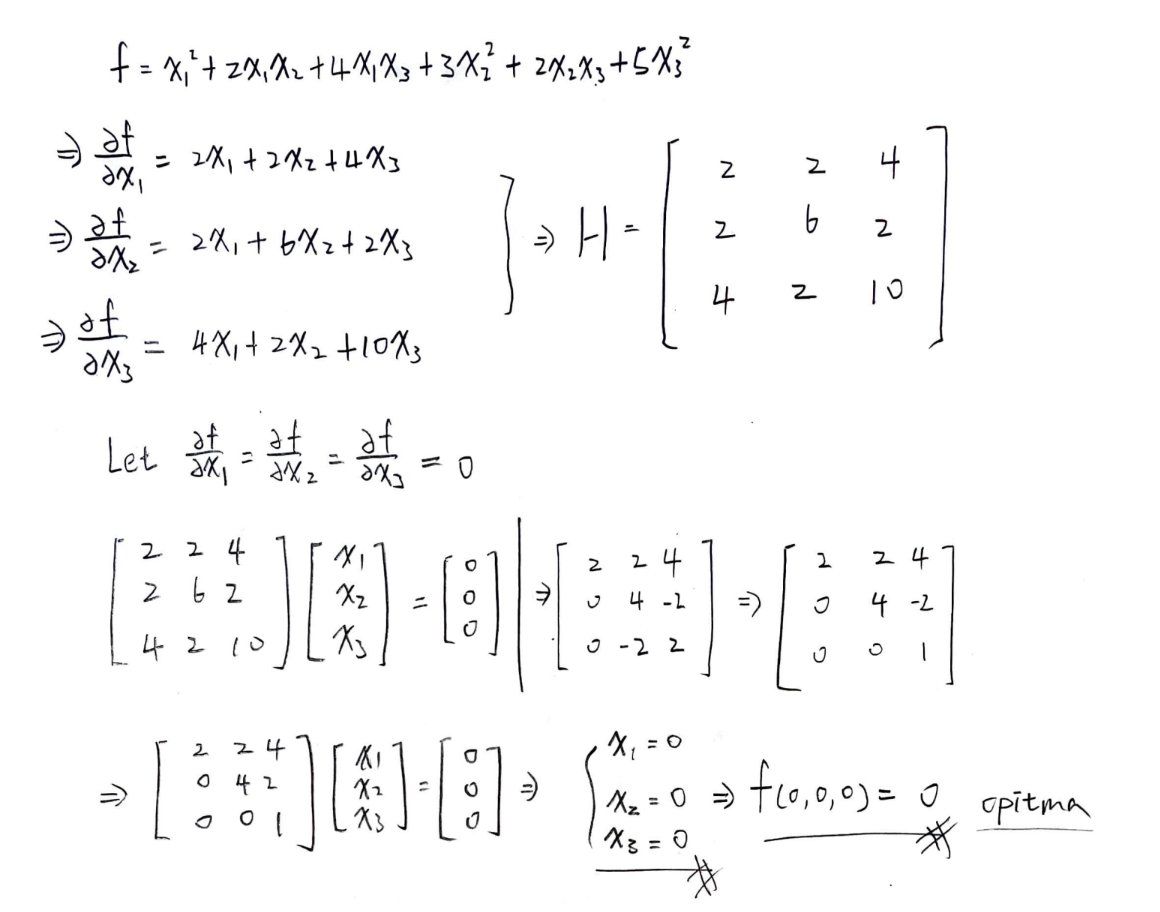 f = x₁² + 2x₁x₂ + 4x₁x₃ + 3x₂² + 2x₂x₃ + 5x₃²
⇒ ∂f/∂x₁ = 2x₁ + 2x₂ + 4x₃
⇒ ∂f/∂x₂ = 2x₁ + 6x₂ + 2x₃
⇒ ∂f/∂x₃ = 4x₁ + 2x₂ + 10x₃
} ⇒ H = [2 2 4; 2 6 2; 4 2 10]
Let ∂f/∂x₁ = ∂f/∂x₂ = ∂f/∂x₃ = 0
[2 2 4; 2 6 2; 4 2 10] [x₁; x₂; x₃] = [0; 0; 0] | ⇒ [2 2 4; 0 4 -2; 0 -2 2] ⇒ [2 2 4; 0 4 -2; 0 0 1]
⇒ [2 2 4; 0 4 2; 0 0 1] [x₁; x₂; x₃] = [0; 0; 0] ⇒ { x₁ = 0; x₂ = 0; x₃ = 0 ⇒ f(0,0,0) = 0 opitma